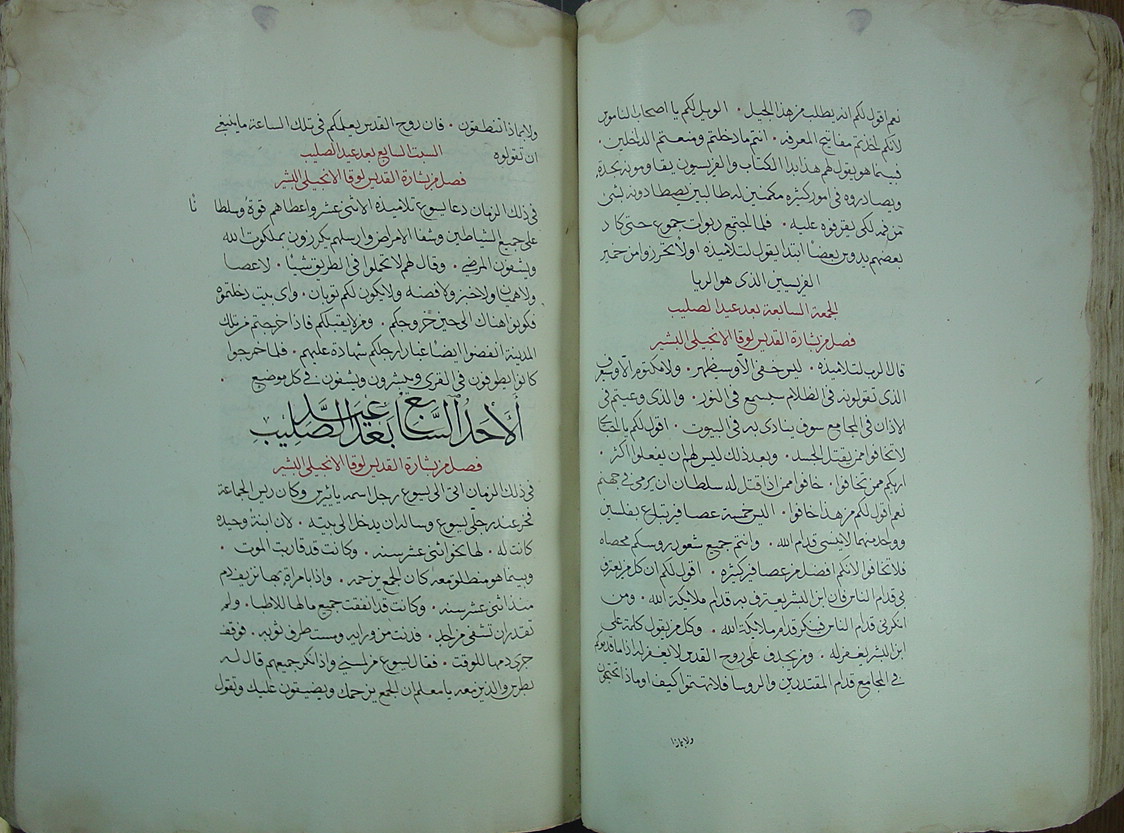 نعم اقول لكم انه يطلب من هذا الجيل . الويل لكم يا اصحاب الناموس
لانكم اخذتم مفاتيح المعرفه . انتم ما دخلتم ومنعتم الداخلين .
فبينما هو يقول لهم هذا بدا الكتاب والفريسيون يقاومونه بحده
ويصادروه في امور كثيره مكمنين له طالبين يصطادونه بشي
من فمه لكي يقرفوه عليه . فلما اجتمع ربوات جموع حتى كاد
بعضهم يدوس بعضا ابتدا يقول لتلاميذه اولا تحرزوا من خمير
الفريسيين الذي هو الريا
الجمعة السابعة بعد عيد الصليب
فصل من بشارة القديس لوقا الانجيلي البشير
قال الرب لتلاميذه . ليس خفي الا وسيظهر . ولا مكتوم الا وسيعرف
الذي تقولونه في الظلام سيسمع في النور . والذي وعيتم في
الاذان في المجامع سوف ينادى به في البيوت . اقول لكم يا احباى
لا تخافوا ممن يقتل الجسد . وبعد ذلك ليس لهم ان يفعلوا اكثر .
اريكم ممن تخافوا . خافوا ممن اذا قتل له سلطان ان يرمي في جهنم
نعم اقول لكم من هذا خافوا . اليس خمسة عصافير تباع بفلسين
وواحد منهما لا ينسى قدام الله . وانتم جميع شعور روسكم محصاه
فلا تخافوا لانكم افضل من عصافير كثيره . اقول لكم ان كل من يعترف
بي قدام الناس فان ابن البشر يعترف به قدام ملايكة الله . ومن
انكرني قدام الناس فينكر قدام ملايكة الله . وكل من يقول كلمة على
ابن البشر يغفر له . ومن يجدف على روح القدس لا يغفر له اذا ما قدموكم
في المجامع قدام المقتدرين والروسا فلا تهتموا كيف او ماذا تحتجون
ولا بماذا
ولا بماذا تنطقون . فان روح القدس يعلمكم في تلك الساعة ما ينبغي
ان تقولوه
السبت السابع بعد عيد الصليب
فصل من بشارة القديس لوقا الانجيلي البشير
في ذلك الزمان دعا يسوع تلاميذه الاثنى عشر واعطاهم قوة وسلطانا
على جميع الشياطين وشفا الامراض وارسلهم يكررون بملكوت الله
ويشفون المرضي . وقال لهم لا تحملوا في الطريق شيئا . لا عصا
ولا هميان ولا خبز ولا فضه ولا يكون لكم ثوبان . واى بيت دخلتموه
فكونوا هناك الى حين خروجكم . ومن لا يقبلكم فاذا خرجتم من تلك
المدينة انفضوا ايضا غبار ارجلكم شهادة عليهم . فلما خرجوا
كانوا يطوفون في القرى ويبشرون ويشفون في كل موضع .
الاحد السابع بعد عيد الصليب
فصل من بشارة القديس لوقا الانجيلي البشير
في ذلك الزمان اتى الى يسوع رجل اسمه يايرس وكان ريس الجماعة
فخر عند رجلي يسوع وساله ان يدخل الى بيته . لان ابنة وحيده
كانت له . لها نحو اثنى عشر سنه . وكانت قد قاربت الموت .
وبينما هو منطلق معه كان الجمع يزحمه . واذا بامراة بها نزيف دم
منذ اثنى عشر سنه . وكانت قد انفقت جميع مالها للاطبا . ولم
تقدر ان تشفى من احد . فدنت من ورايه ومست طرف ثوبه . فوقف
جرى دمها للوقت . فقال يسوع من لمسني واذ انكر جميعهم قال له
بطرس والذين معه يا معلم ان الجمع يزحمك ويضيقون عليك وتقول